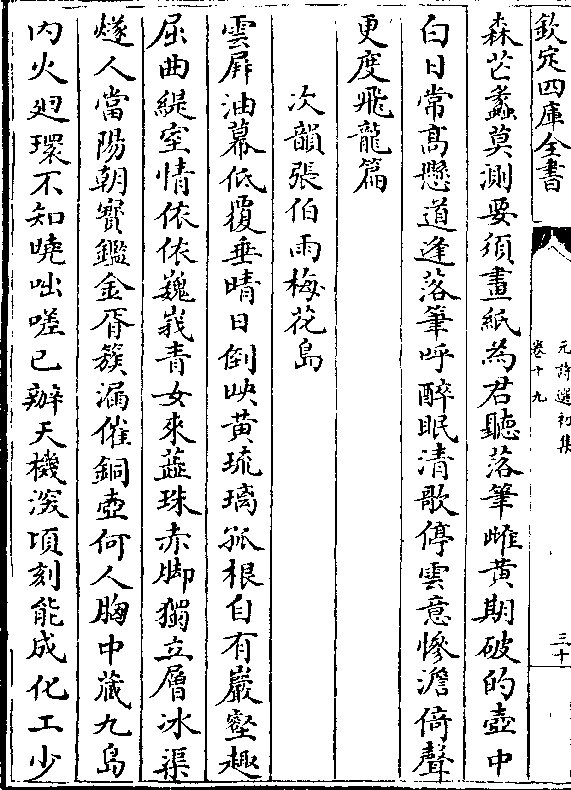 欽定四庫全書
元詩選初集
卷十九
三十
森芒蠡莫測要須畫紙為君聽落筆雌黄期破的壺中
白日常髙懸道逢落筆呼醉眠清歌停雲意慘澹倚聲
更度飛龍篇
次韻張伯雨梅花島
雲屏油幕低覆垂晴日倒映黄琉璃孤根自有巖壑趣
屈曲緹室情依依巍峩青女來蕋珠赤脚獨立層冰渠
燧人當陽朝寳鑑金胥簇漏催銅壺何人胸中藏九島
内火廻環不知曉咄嗟已辦天機深頃刻能成化工少